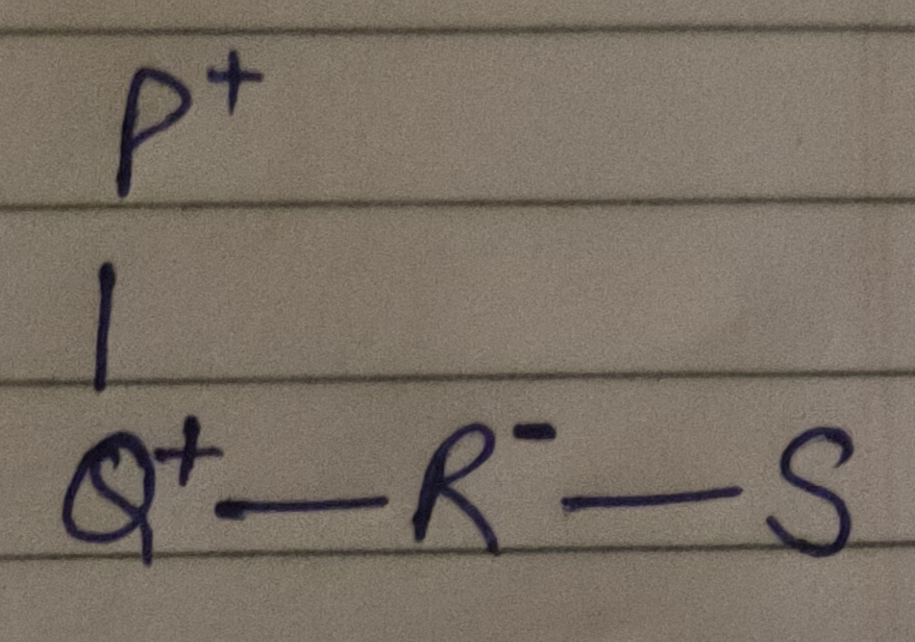 P⁺
|
Q⁺ — R⁻ — S